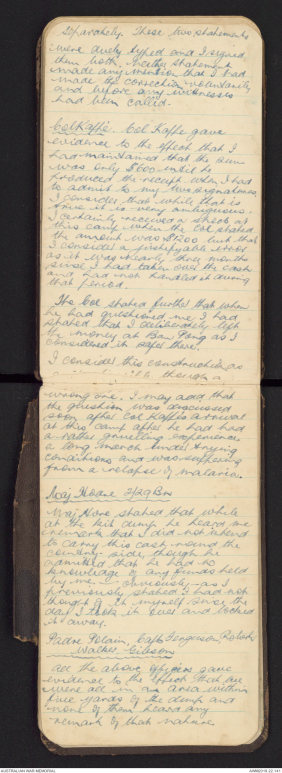 separately. These two statements
were duely typed and I signed
them both. Neither statement
made any mention that I had
made the correction voluntarily
and before any witnesses
had been called.
Col Kaffe. Col Kaffe gave
evidence to the effect that I
had maintained that the sum
was only $600 until he
produced the receipt when I had
to admit to my two signatures
I consider that while that is
true it is very ambiguous.
I certainly received a shock at
this camp when the Col stated
the amount was $1200 but that
I consider a justifyable
as it was nearly three months
since I had taken over the cash
and had not handled it during
that period.
The Col stated further that when
he had questioned me I had
stated that I deliberately left
the money at Ban Pong as I
considered it safer there.
I consider this construction as
though a
wrong one. I may add that
the question was discussed
soon after Col Kaffes arrival
at this camp after he had had
a rather gruelling experience
a long march under trying
conditions and was suffering
from a relapse of malaria.
Maj Hoare 2/29 Bn
Maj Hore stated that while
at the kit dump he heard me
remark that I did not intend
to carry this cash round the
country side, though he
admitted that he had no
knowledge of any funds held
by me. Obviously as I
previously stated I had not
thought of it myself since the
day I took it over and locked
it away.
Padre Polain, Capts Ferguson, Roberts
Walker, Gibson
All the above officers gave
evidence to the effect that we
were all in an area within
three yards of the dump and
none of them heard any
remark of that nature.
AUSTRALIAN WAR MEMORIAL